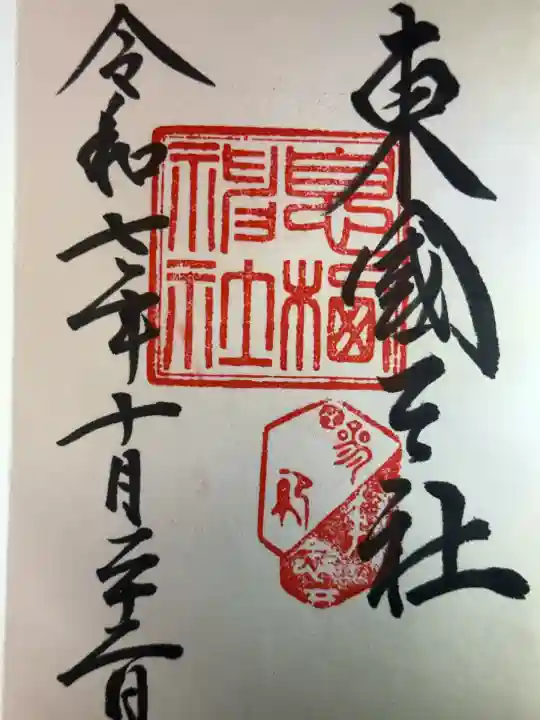 東國三社
息栖神社
令和七年十月二十二日